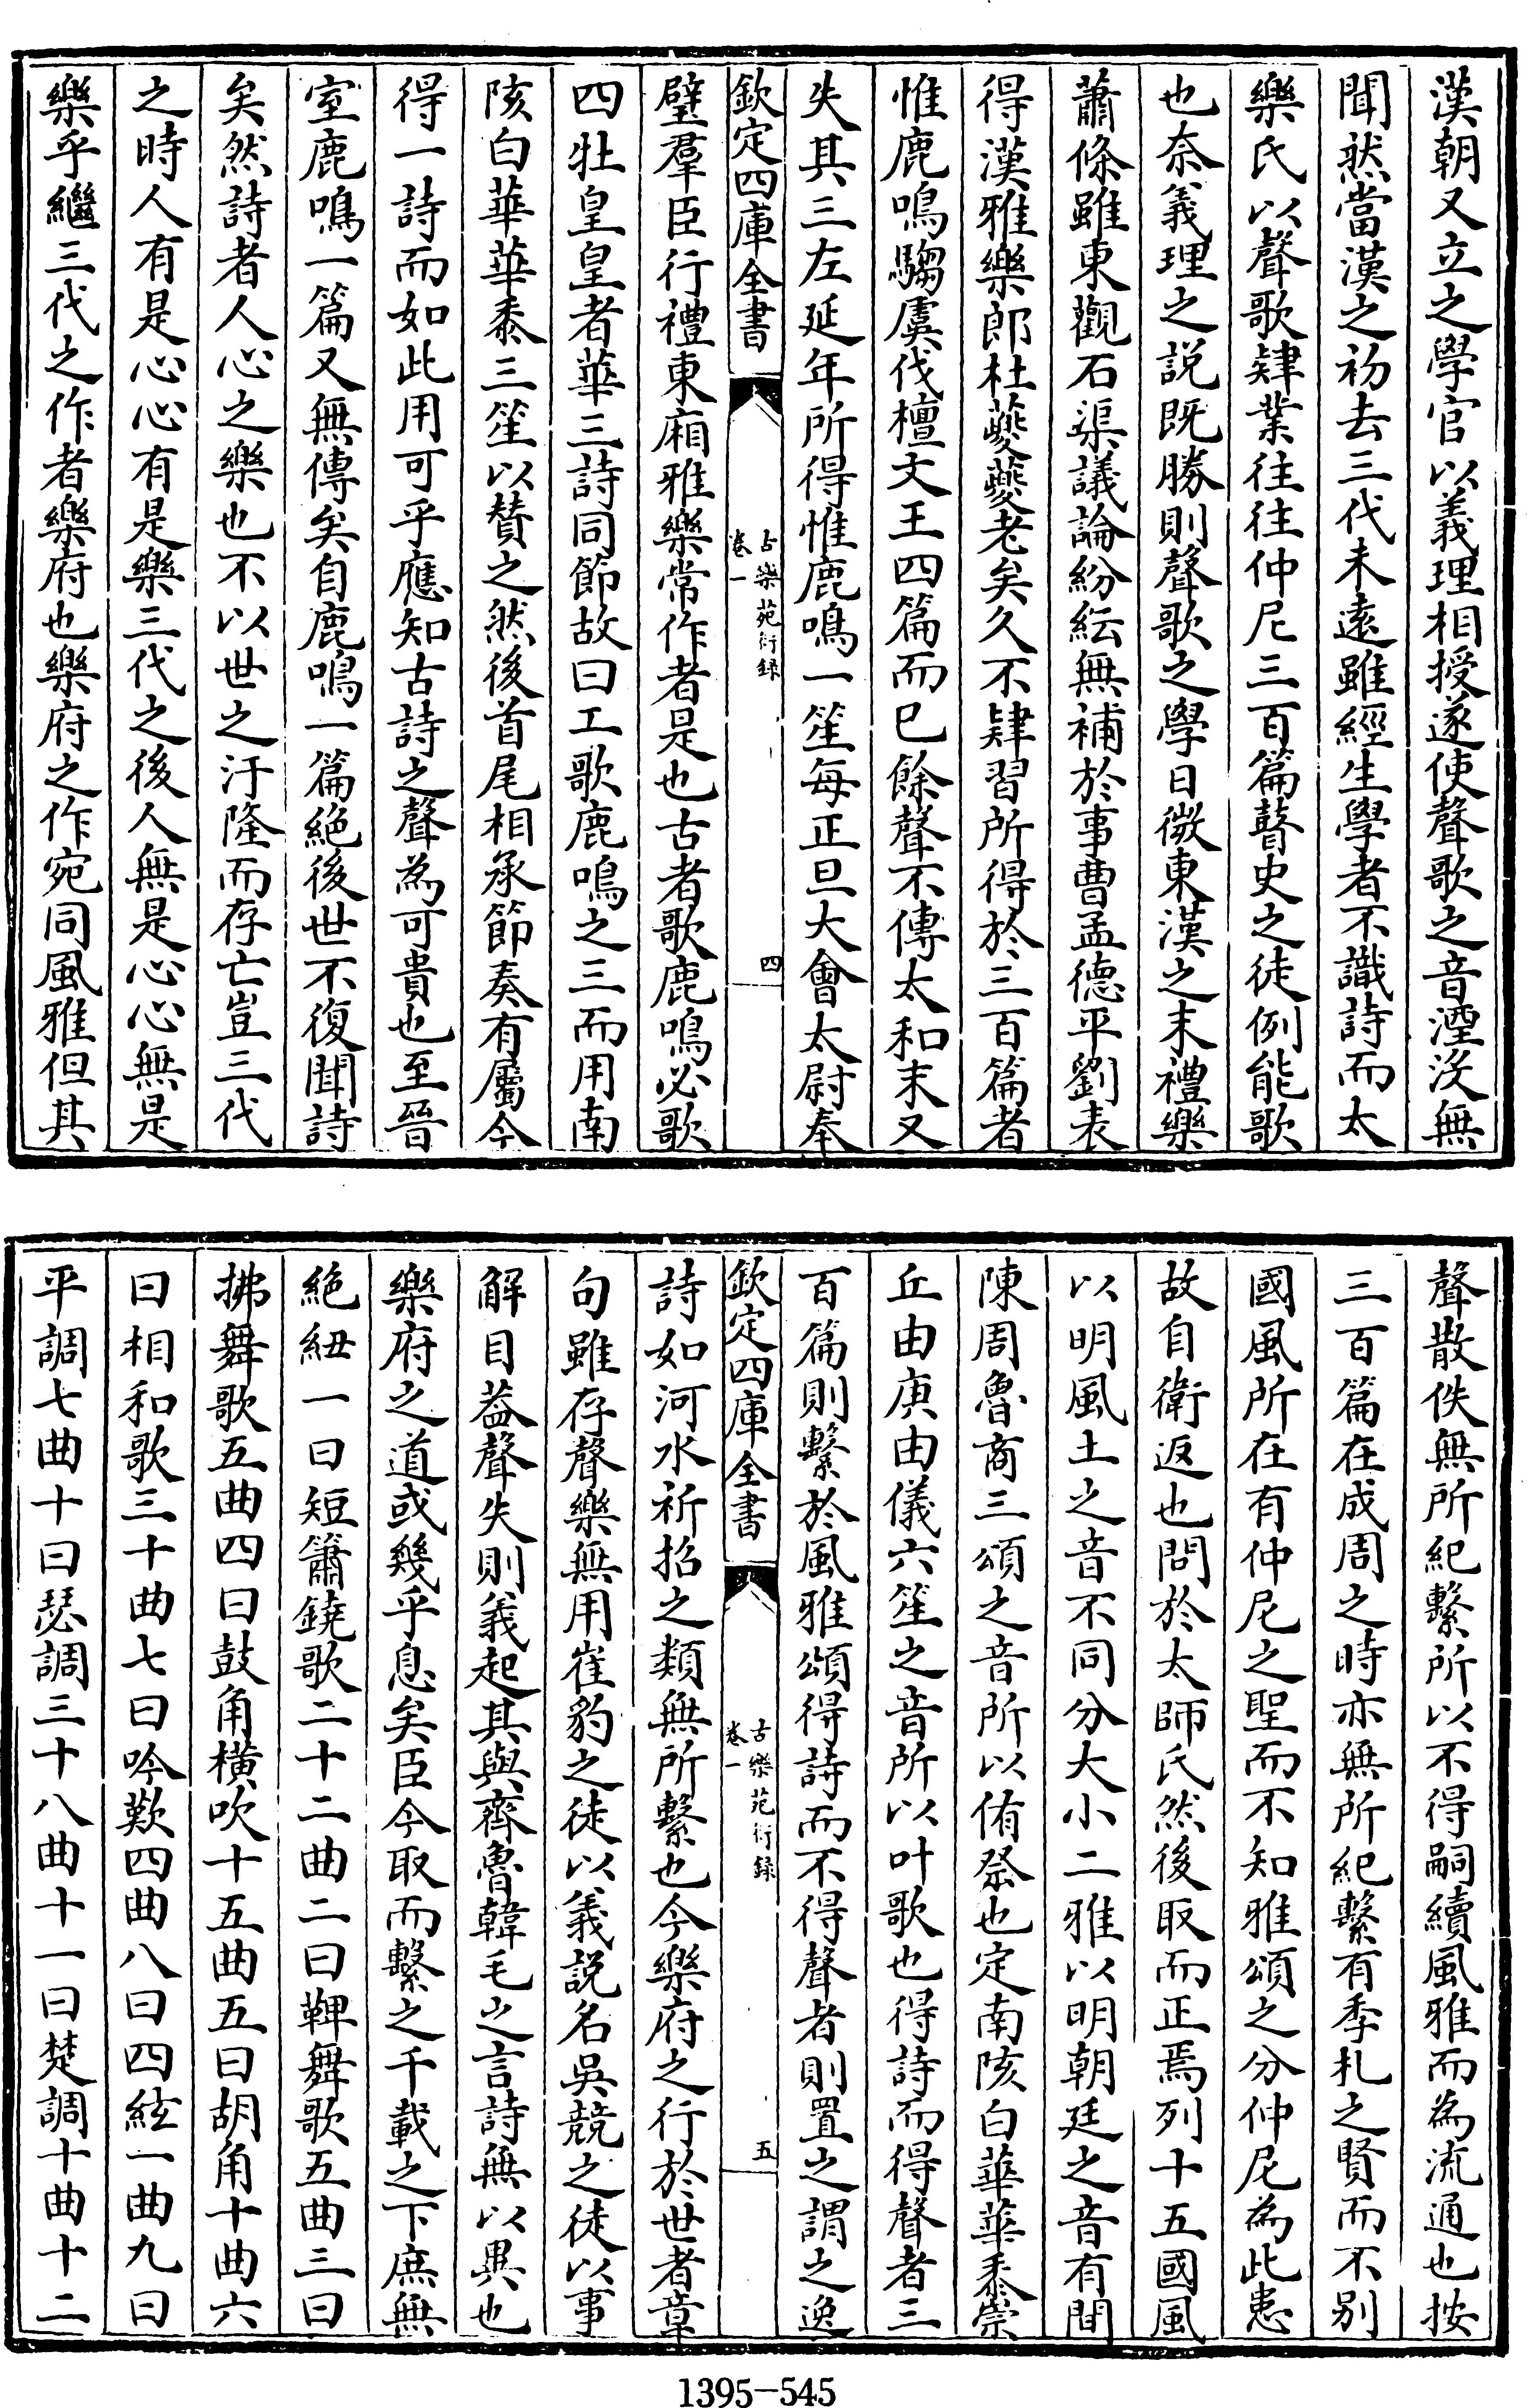 漢朝又立之學官以義理相授遂使聲歌之音湮沒無
聞然當漢之初去三代未遠雖經生學者不識詩而太
樂氏以聲歌肄業往往仲尼三百篇瞽史之徒例能歌
也奈義理之說既勝則聲歌之學日微東漢之末禮樂
蕭條雖東觀石渠議論紛紜無補於事曹孟德平劉表
得漢雅樂郎杜夔夔老矣久不肄習所得於三百篇者
惟鹿鳴騶虞伐檀文王四篇而已餘聲不傳太和末又
失其三左延年所得惟鹿鳴一笙每正旦大會太尉奉
欽定四庫全書
古樂苑衍録
卷一
四
璧羣臣行禮東廂雅樂常作者是也古者歌鹿鳴必歌
四牡皇皇者華三詩同節故曰工歌鹿鳴之三而用南
陔白華華黍三笙以贊之然後首尾相承節奏有屬今
得一詩而如此用可乎應知古詩之聲為可貴也至晉
室鹿鳴一篇又無傳矣自鹿鳴一篇絕後世不復聞詩
矣然詩者人心之樂也不以世之汙隆而存亡豈三代
之時人有是心心有是樂三代之後人無是心心無是
樂乎繼三代之作者樂府也樂府之作宛同風雅但其
聲散佚無所紀繫所以不得嗣續風雅而為流通也按
三百篇在成周之時亦無所紀繫有季札之賢而不别
國風所在有仲尼之聖而不知雅頌之分仲尼為此患
故自衛返也問於太師氏然後取而正焉列十五國風
以明風土之音不同分大小二雅以明朝廷之音有間
陳周魯商三頌之音所以侑祭也定南陔白華華黍崇
丘由庚由儀六笙之音所以叶歌也得詩而得聲者三
百篇則繫於風雅頌得詩而不得聲者則置之謂之逸
欽定四庫全書
古樂苑衍録
卷一
五
詩如河水祈招之類無所繫也今樂府之行於世者章
句雖存聲樂無用崔豹之徒以義說名吳兢之徒以事
解目葢聲失則義起其與齊魯韓毛之言詩無以異也
樂府之道或幾乎息矣臣今取而繫之千載之下庶無
絕紐一曰短簫鐃歌二十二曲二曰鞞舞歌五曲三曰
拂舞歌五曲四曰鼓角橫吹十五曲五曰胡角十曲六
曰相和歌三十曲七曰吟歎四曲八曰四絃一曲九曰
平調七曲十曰瑟調三十八曲十一曰楚調十曲十二
1395-545